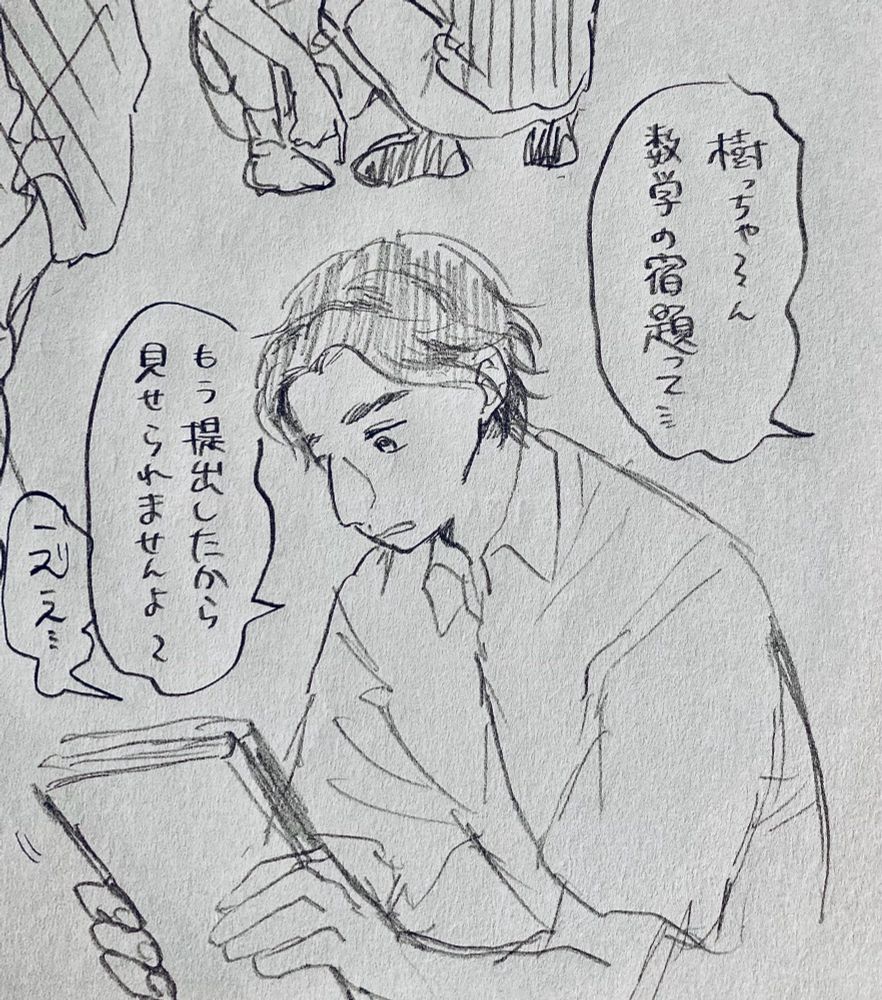 樹っちゃ〜ん
数学の宿題って…
もう提出したから
見せられませんよ〜